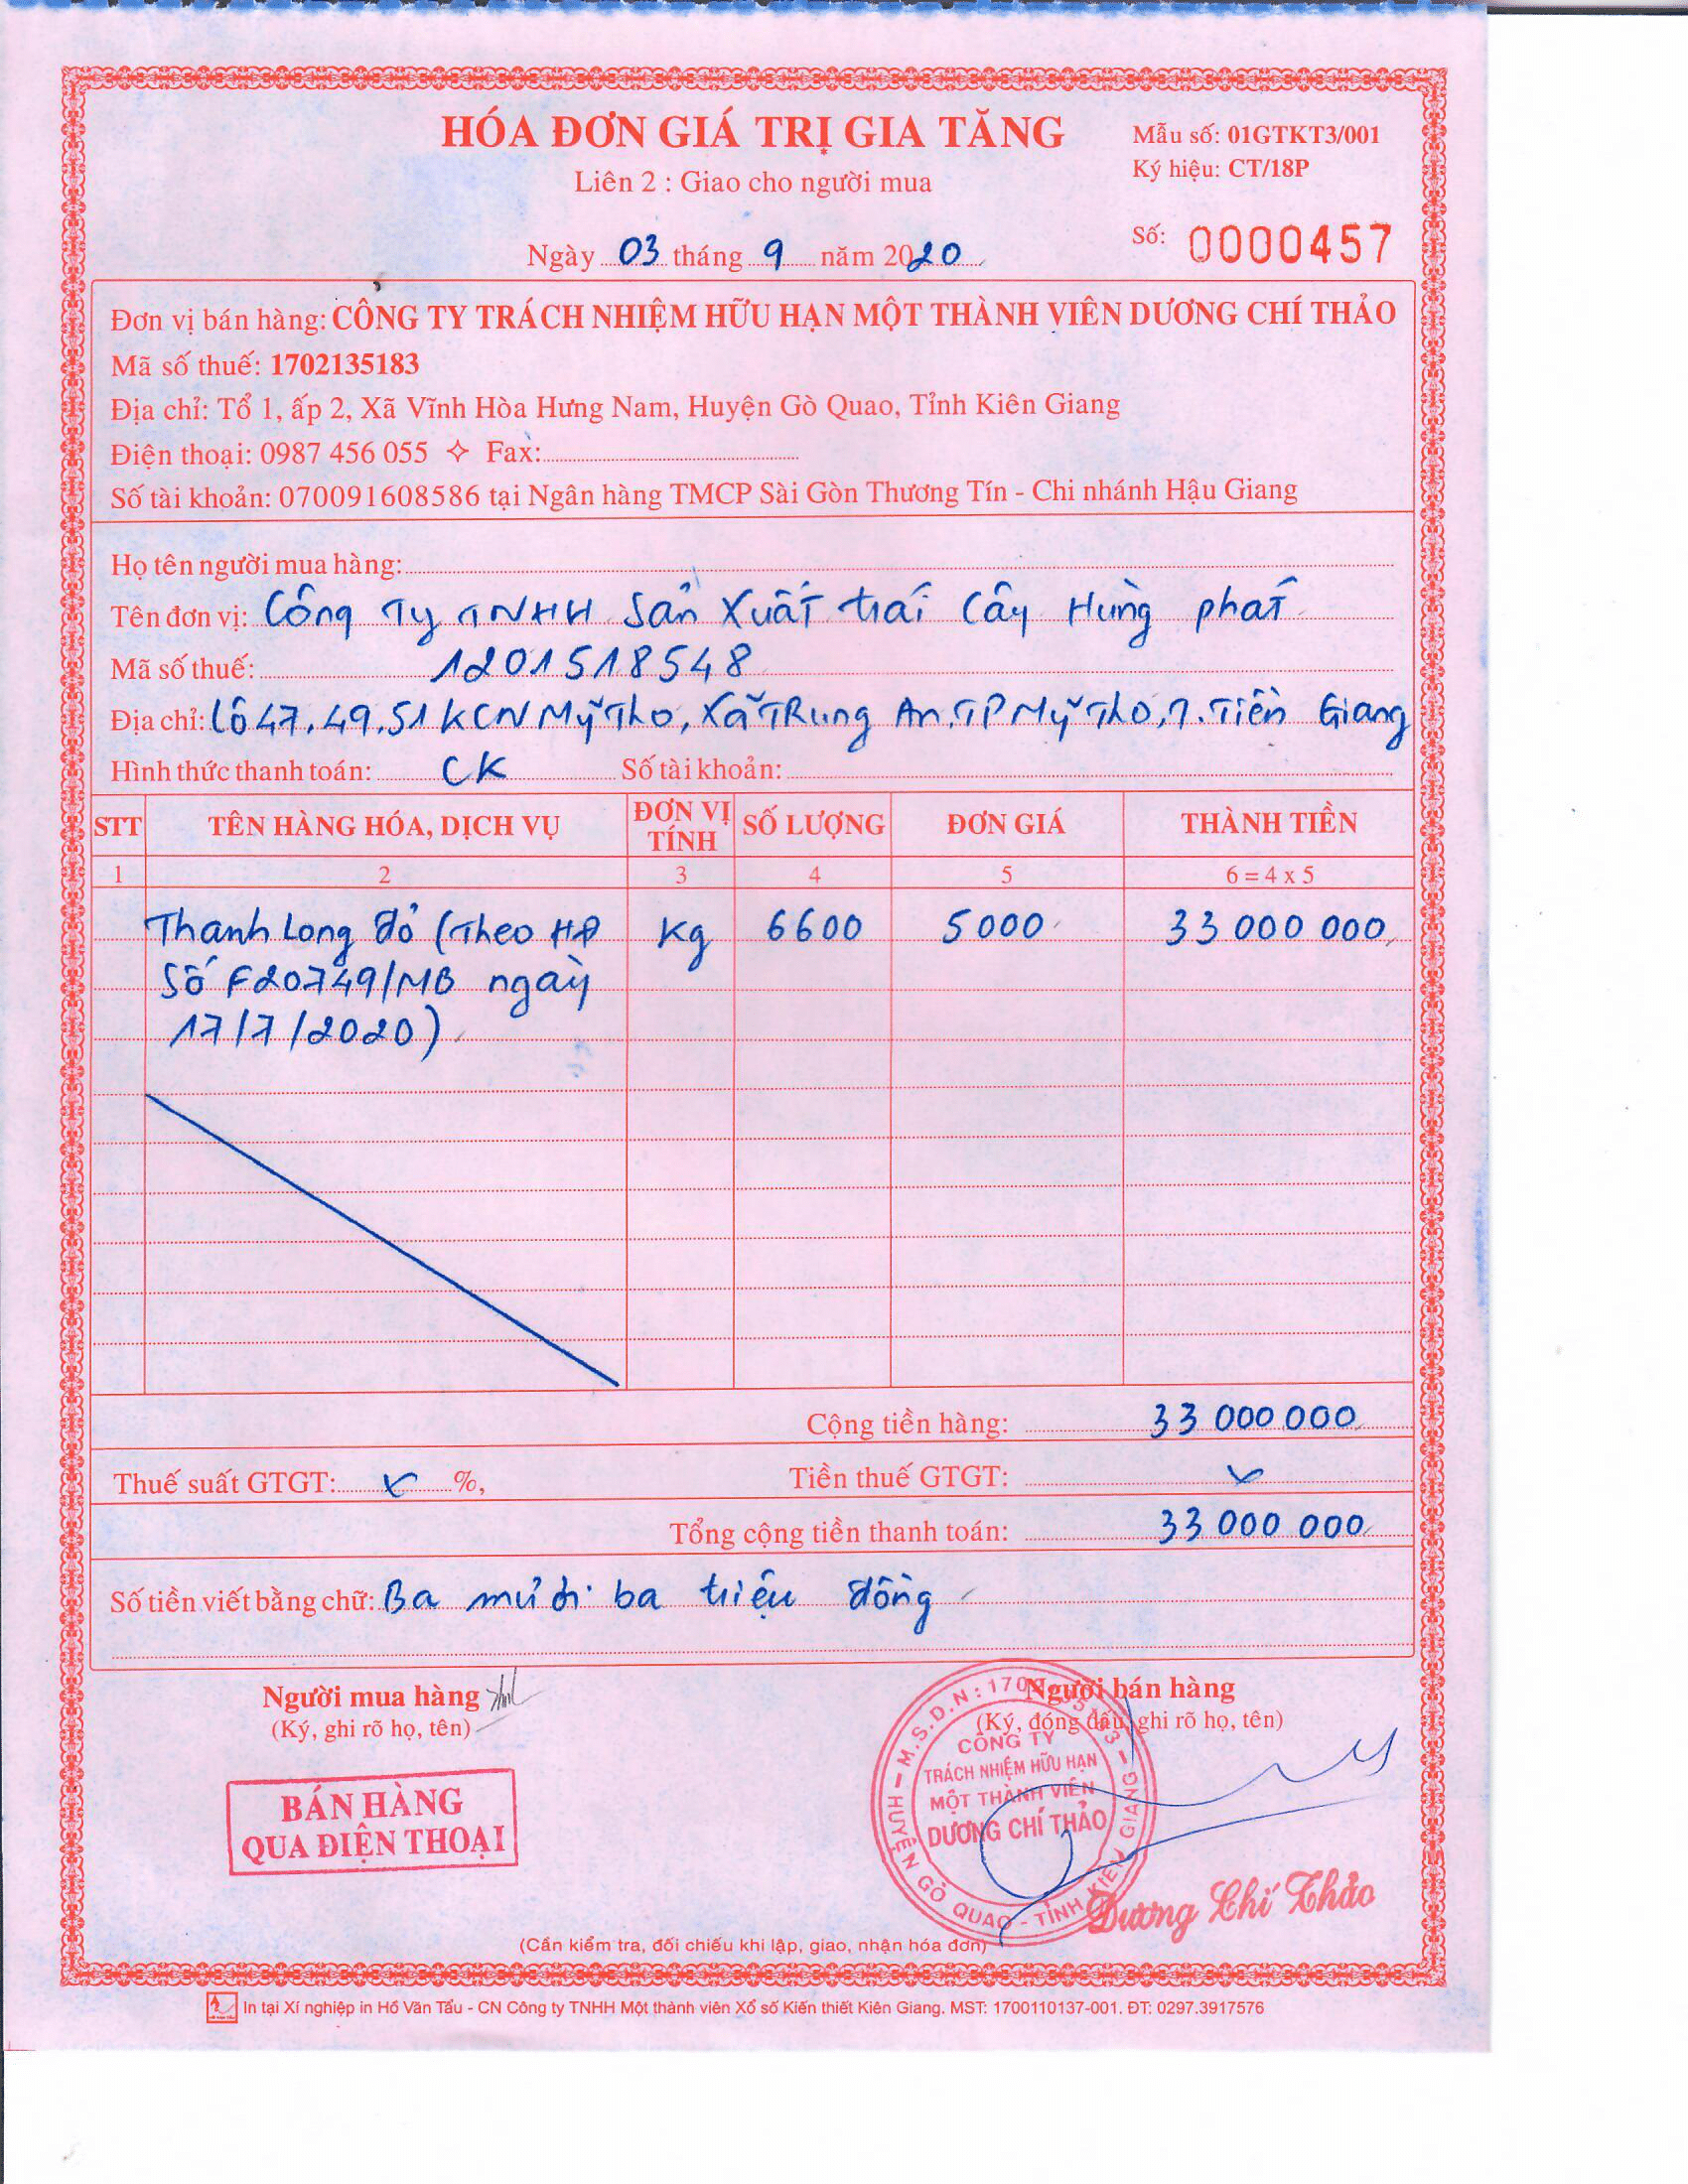 HÓA ĐƠN GIÁ TRỊ GIA TĂNG
Mẫu số: 01GTKT3/001
Liên 2 : Giao cho người mua
Ký hiệu: CT/18P
Ngày 03 tháng 9 năm 2020
Số: 0000457
Đơn vị bán hàng: CÔNG TY TRÁCH NHIỆM HỮU HẠN MỘT THÀNH VIÊN DƯƠNG CHÍ THẢO
Mã số thuế: 1702135183
Địa chỉ: Tổ 1, ấp 2, Xã Vĩnh Hòa Hưng Nam, Huyện Gò Quao, Tỉnh Kiên Giang
Điện thoại: 0987 456 055 ✧ Fax:
Số tài khoản: 070091608586 tại Ngân hàng TMCP Sài Gòn Thương Tín - Chi nhánh Hậu Giang
Họ tên người mua hàng:
Tên đơn vị: Công Ty TNHH Sản Xuất trái Cây Hùng phát
Mã số thuế: 1201518548
Địa chỉ: Lô 47, 49, 51 KCN Mỹ Tho, Xã Trung An, TP Mỹ Tho, T. Tiền Giang
Hình thức thanh toán: CK Số tài khoản:
STT TÊN HÀNG HÓA, DỊCH VỤ ĐƠN VỊ TÍNH SỐ LƯỢNG ĐƠN GIÁ THÀNH TIỀN
1 2 3 4 5 6 = 4 x 5
Thanh Long đỏ (Theo HĐ Kg 6600 5000 33 000 000
Số F20749/MB ngày
17/7/2020)
Cộng tiền hàng: 33 000 000
Thuế suất GTGT: x %, Tiền thuế GTGT: x
Tổng cộng tiền thanh toán: 33 000 000
Số tiền viết bằng chữ: Ba mươi ba triệu đồng
Người mua hàng Người bán hàng
(Ký, ghi rõ họ, tên) (Ký, đóng dấu, ghi rõ họ, tên)
BÁN HÀNG
QUA ĐIỆN THOẠI
CÔNG TY
TRÁCH NHIỆM HỮU HẠN
MỘT THÀNH VIÊN
DƯƠNG CHÍ THẢO
HUYỆN GÒ QUAO - TỈNH KIÊN GIANG
Dương Chí Thảo
(Cần kiểm tra, đối chiếu khi lập, giao, nhận hóa đơn)
In tại Xí nghiệp in Hồ Văn Tẩu - CN Công ty TNHH Một thành viên Xổ số Kiến thiết Kiên Giang. MST: 1700110137-001. ĐT: 0297.3917576